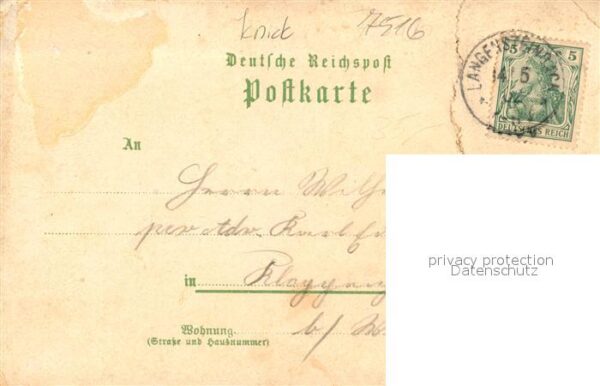 knick 17516
Deutsche Reichspost
Postkarte
5 5
LANGENSTEINBACH
14 5
02
DEUTSCHES REICH
An
Herrn Wilh
per Adr. Karl
in
Wohnung
(Straße und Hausnummer)
b/
privacy protection
Datenschutz